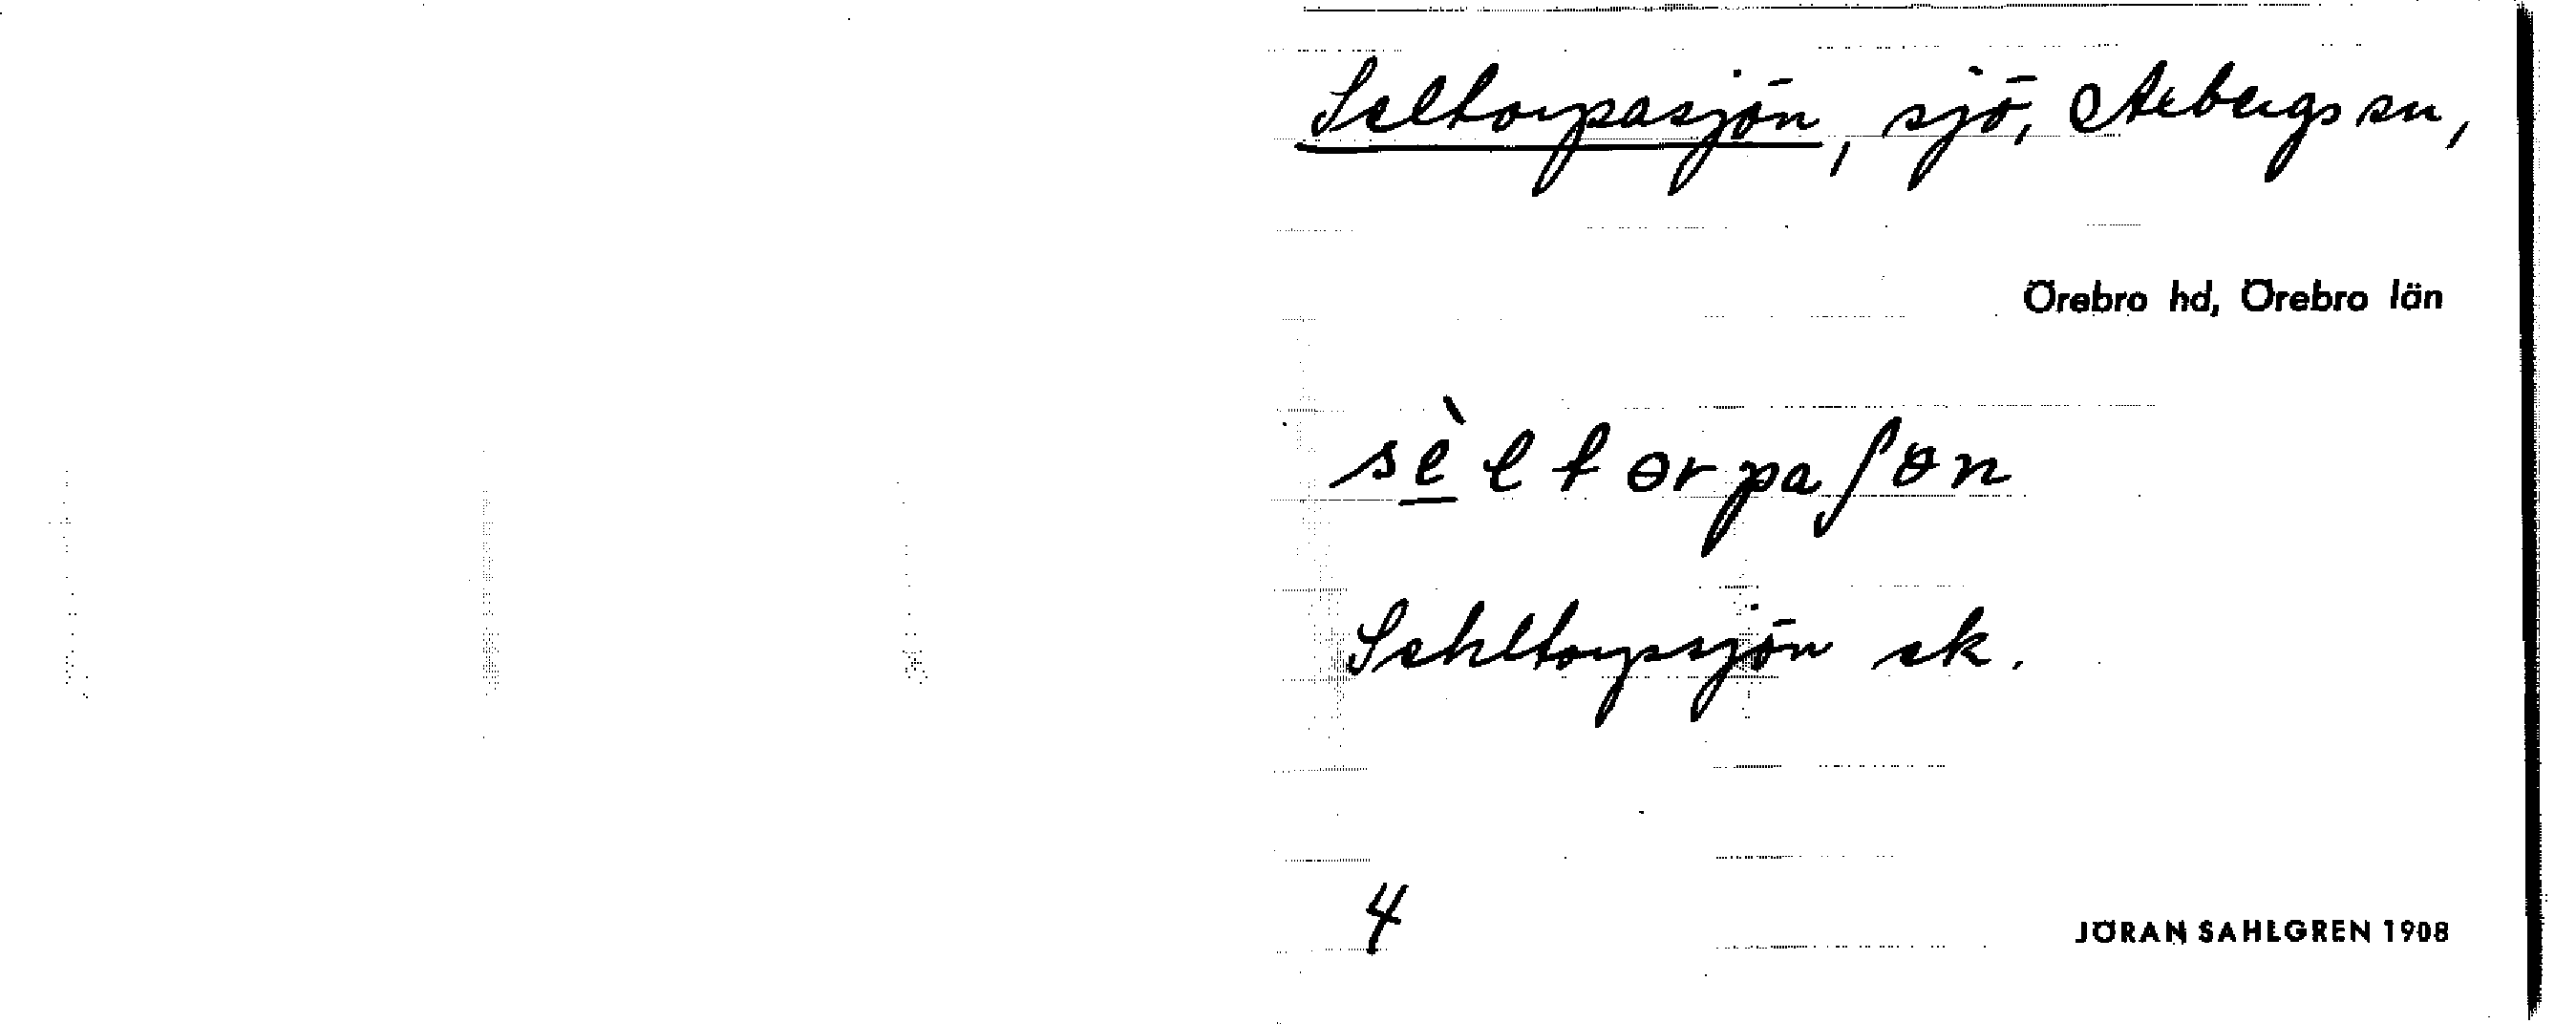 Seltorpasjön, sjö, Axbergs sn,
Örebro hd, Örebro län
sèltɵrpaʃɵn
Sehltorpsjön ek.
4
JÖRAN SAHLGREN 1908